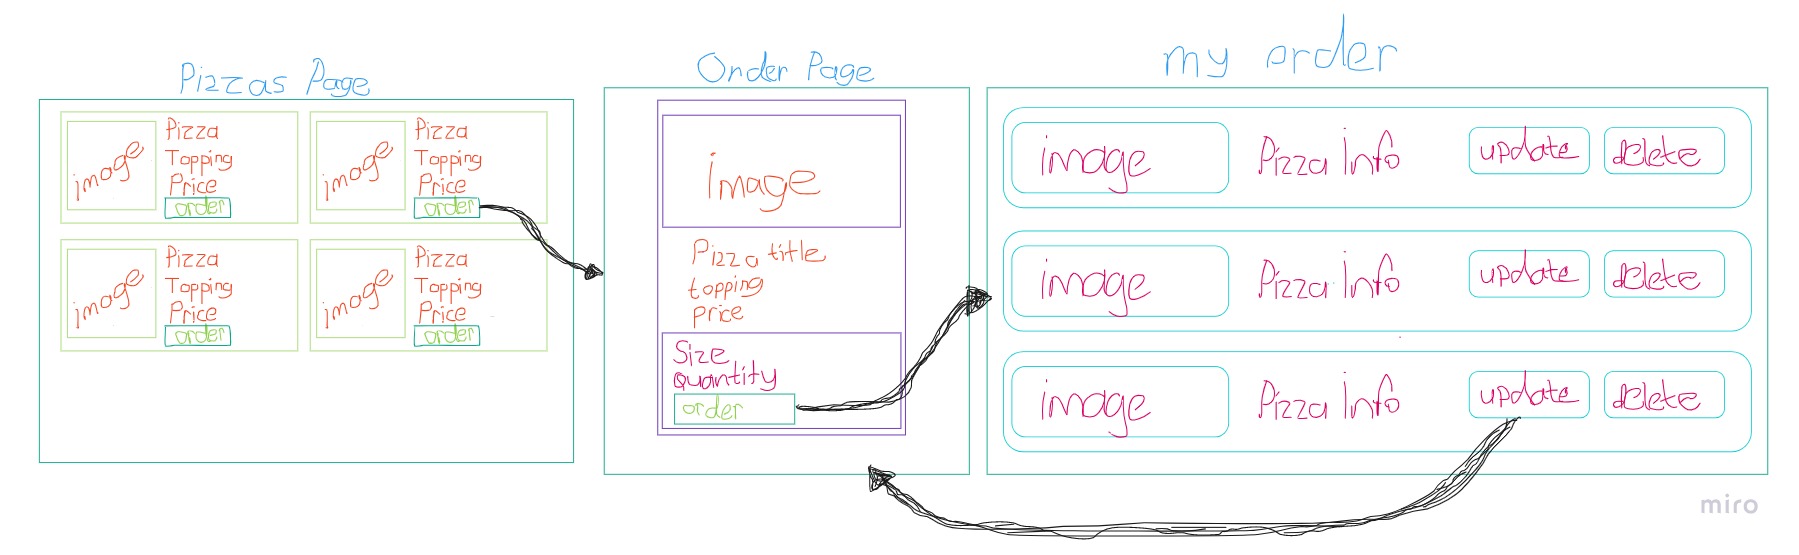 Pizzas Page
image
Pizza
Topping
Price
order
image
Pizza
Topping
Price
order
image
Pizza
Topping
Price
order
image
Pizza
Topping
Price
order
Order Page
image
Pizza title
topping
price
Size
quantity
order
my order
image
Pizza Info
update
delete
image
Pizza Info
update
delete
image
Pizza Info
update
delete
miro